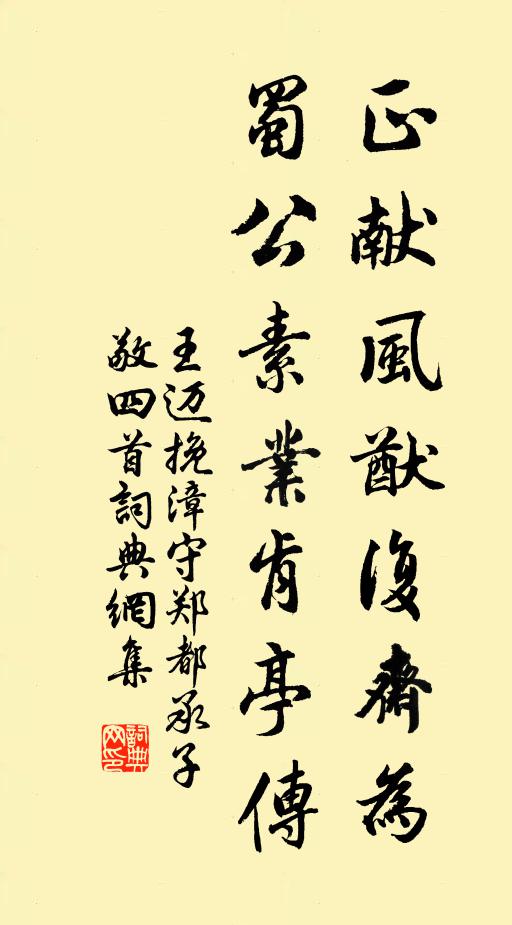 正献風猷復齋為
蜀公素業肯亭傳
王迈挽漳守郑都承子
敬四首詞典網集
詞典
网印